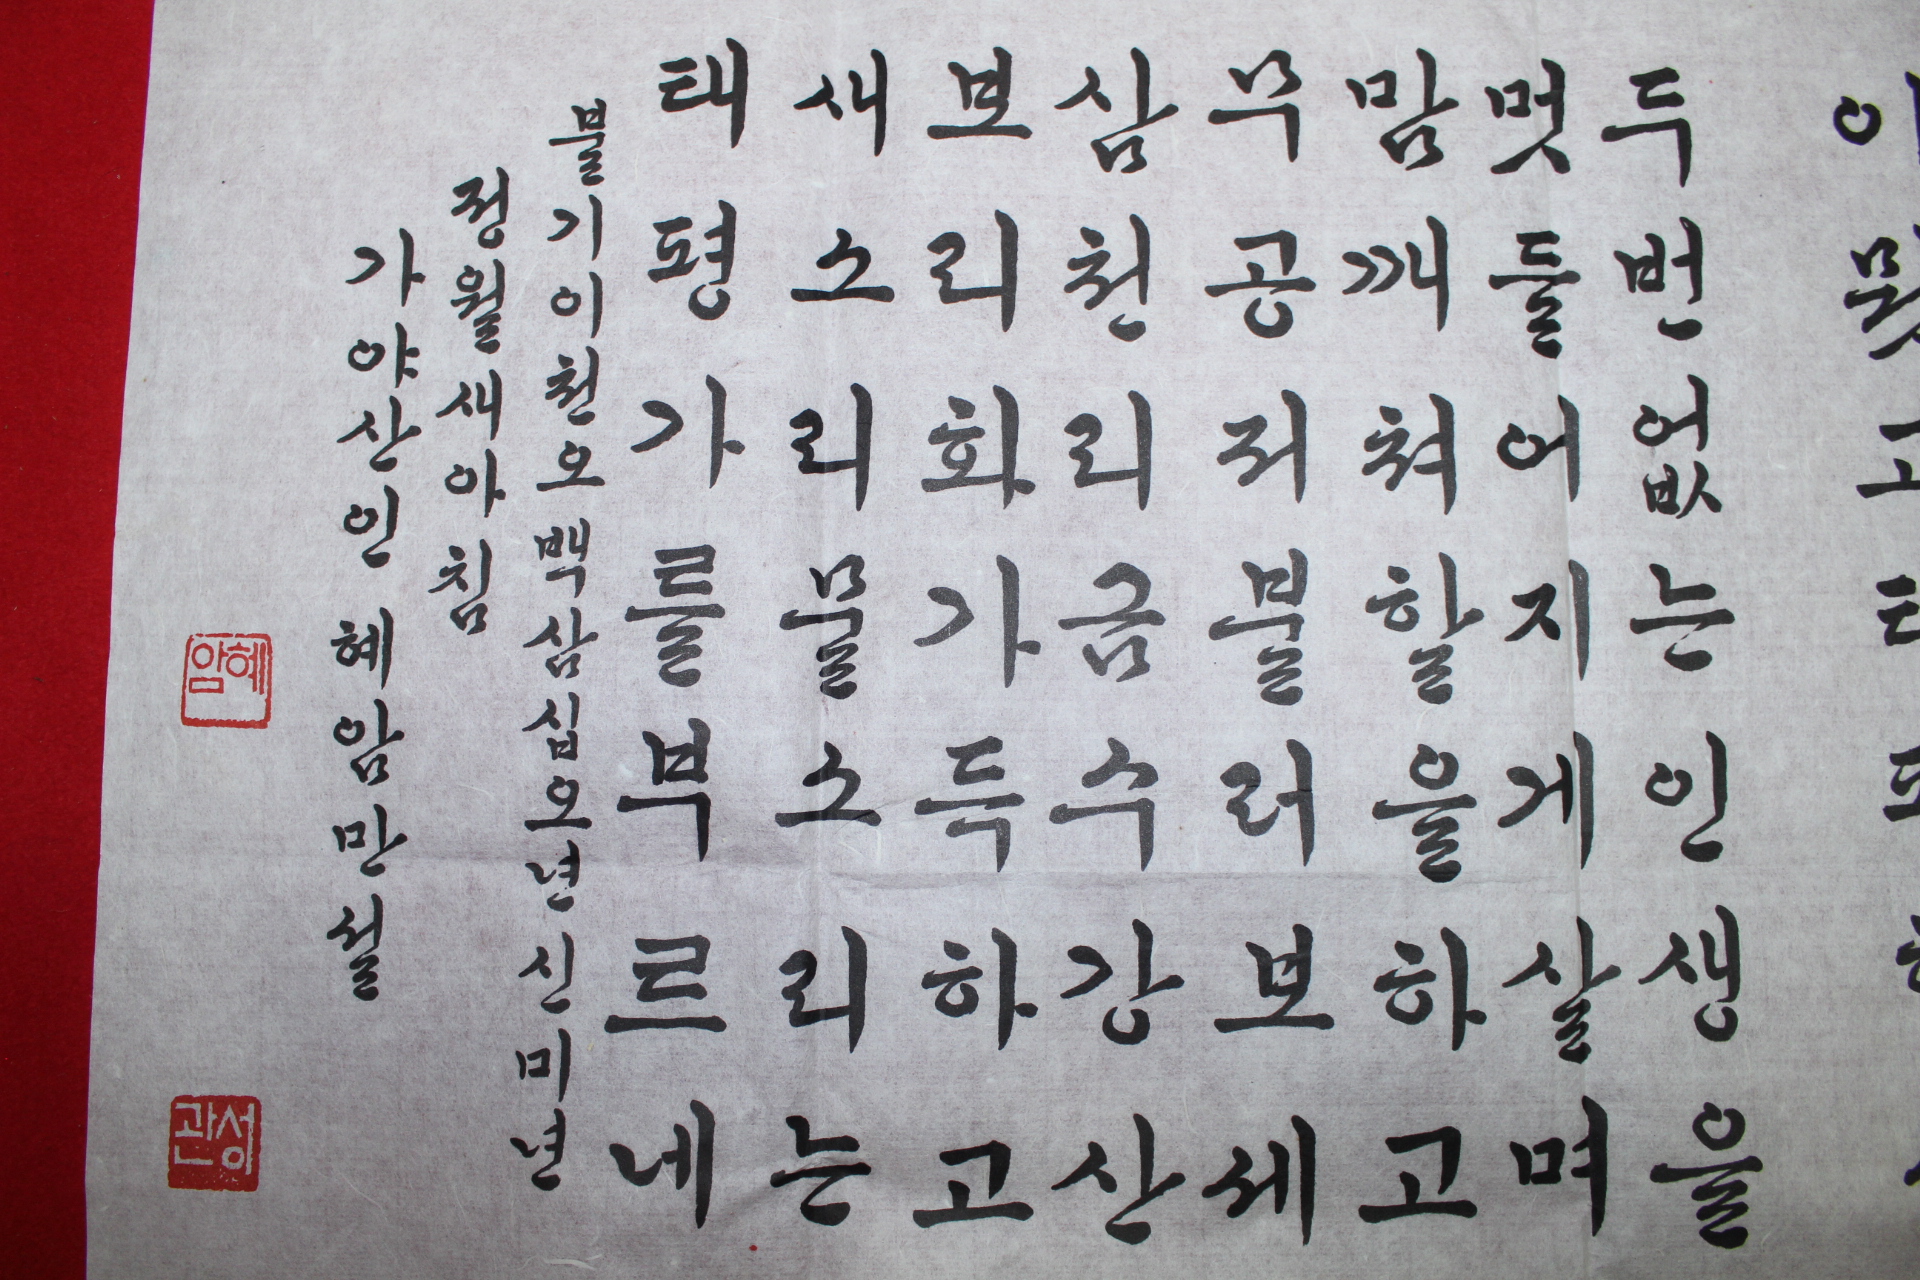 두번없는인생을
멋들어지게살며
맘깨쳐할을하고
무공저불러보세
삼천리금수강산
보리화가득하고
새소리물소리는
태평가를부르네
불기이천오백삼십오년신미년
정월새아침
가야산인 혜암만설
혜암
성관